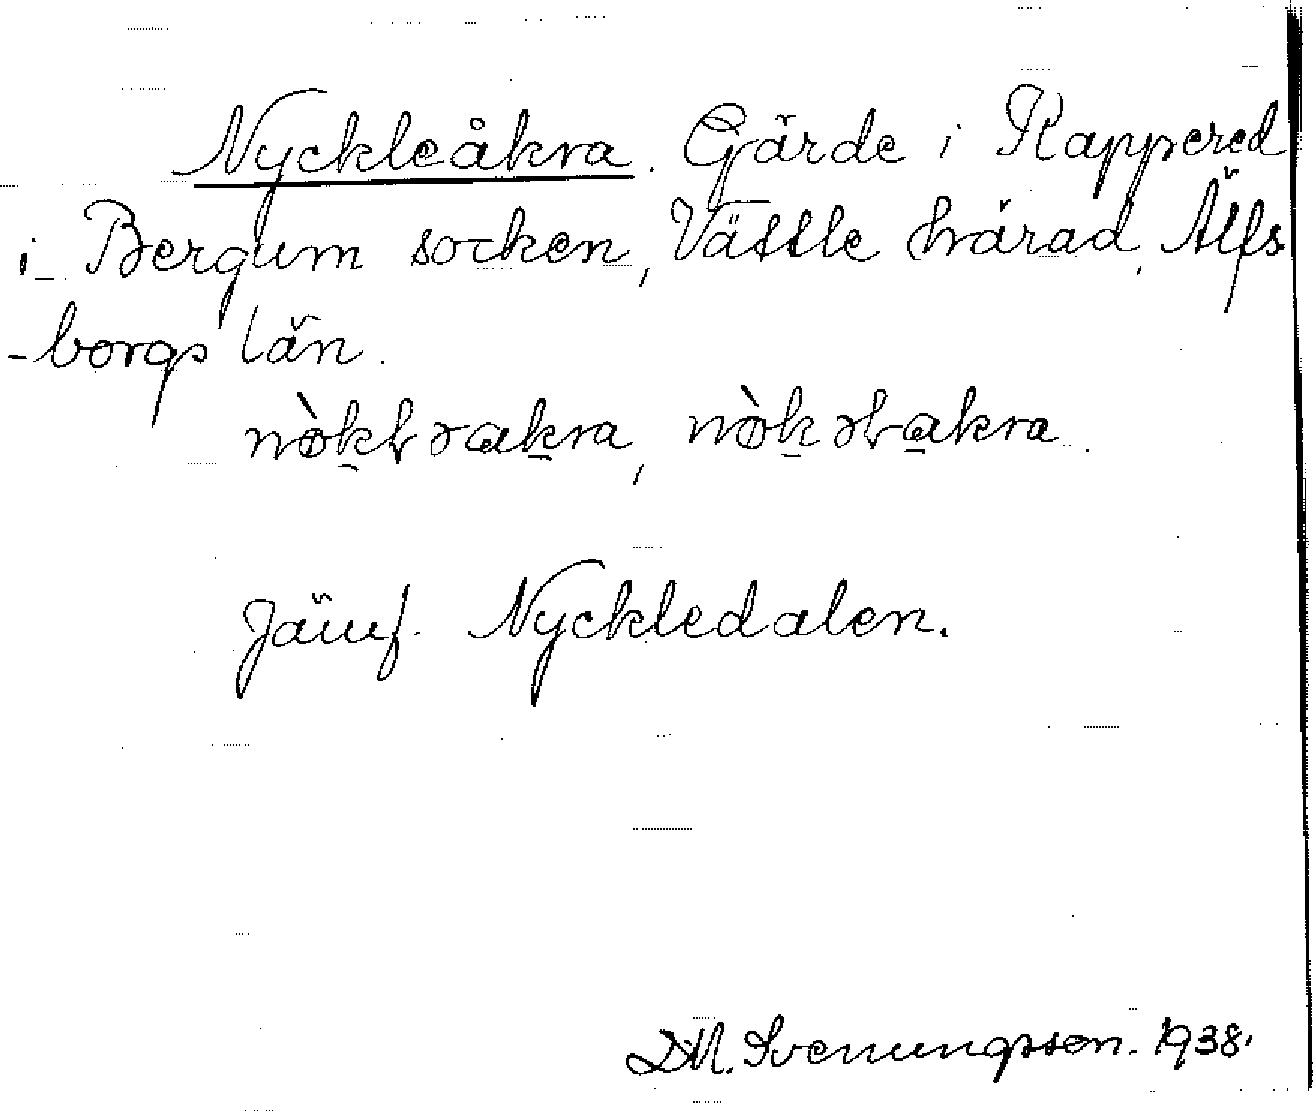 Nyckleåkra. Gärde i Rappered
i Bergum socken, Vättle härad, Älfs
-borgs län.
Jämf. Nyckledalen.
D.M. Svenungsson. 1938.